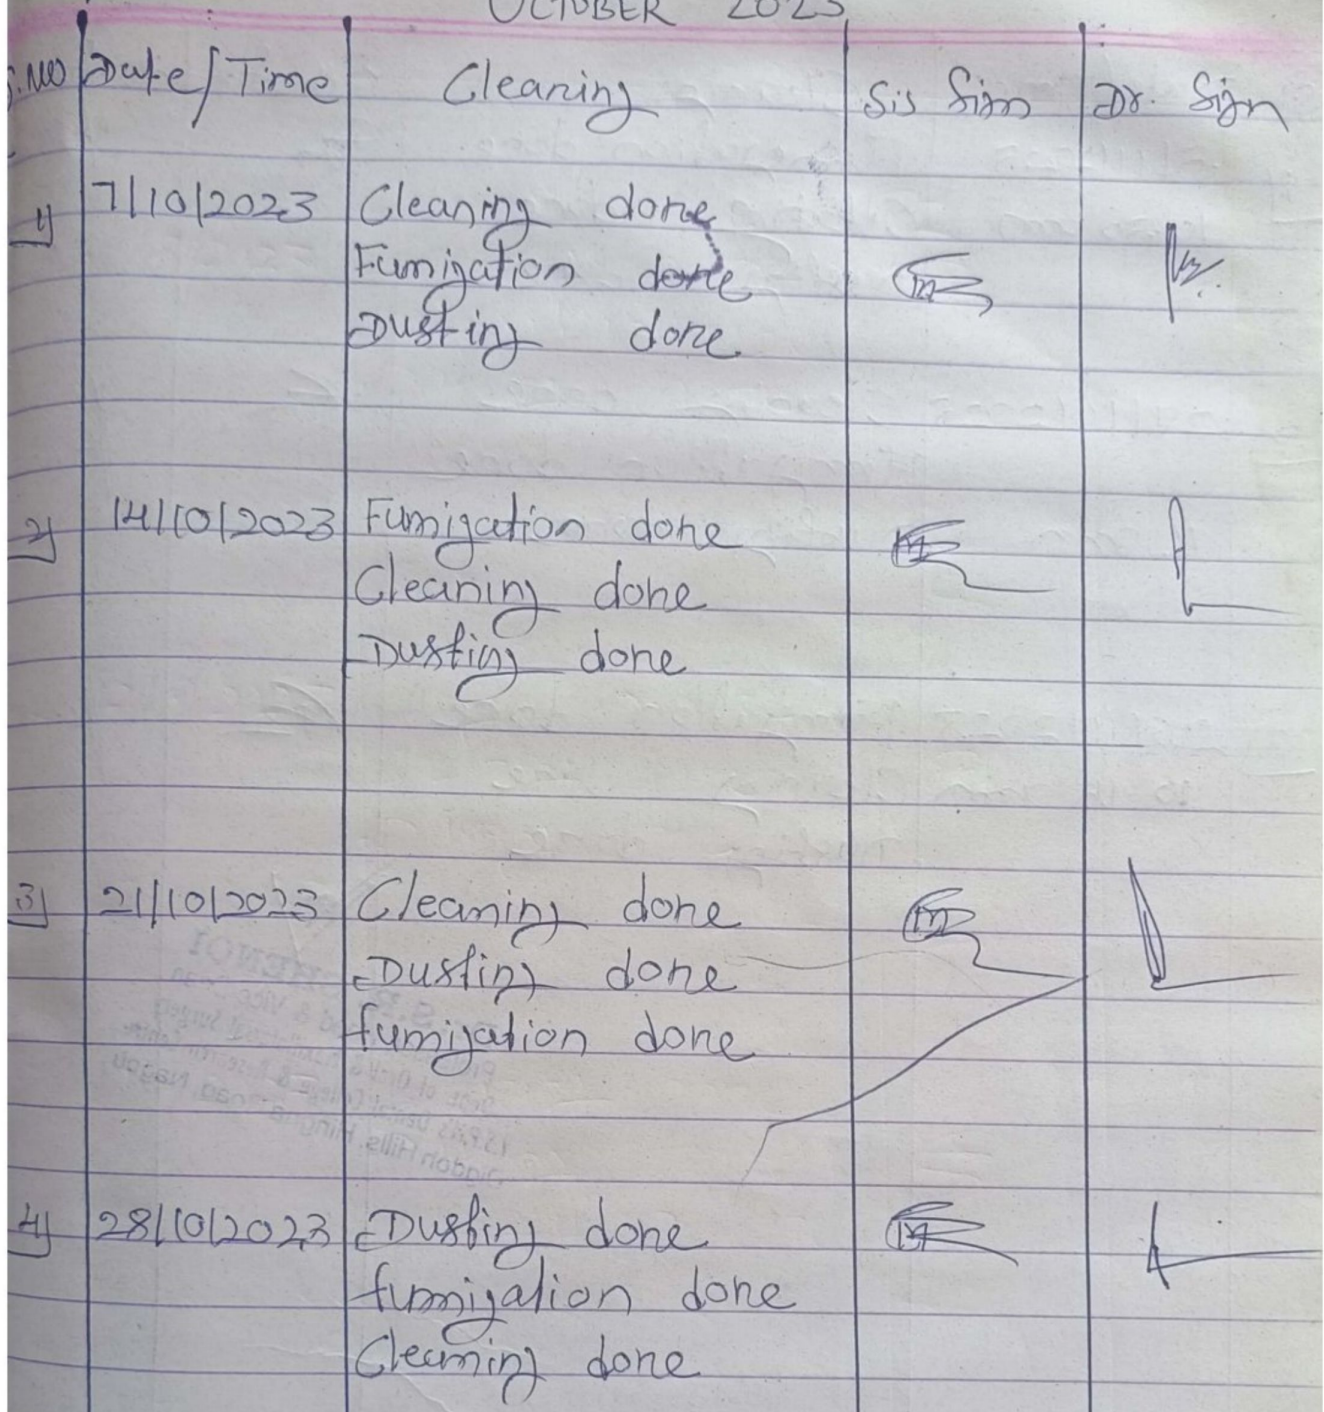 OCTOBER 2023
S.NO Date/Time Cleaning Sis Sign Dr. Sign
1) 7/10/2023 Cleaning done
Fumigation done
Dusting done
2) 14/10/2023 Fumigation done
Cleaning done
Dusting done
3) 21/10/2023 Cleaning done
Dusting done
fumigation done
4) 28/10/2023 Dusting done
fumigation done
Cleaning done